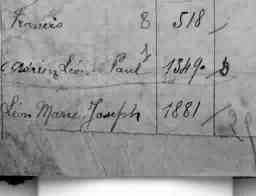 Francis 8 518
Adrien Léon Paul 1349
Léon Marie Joseph 1881